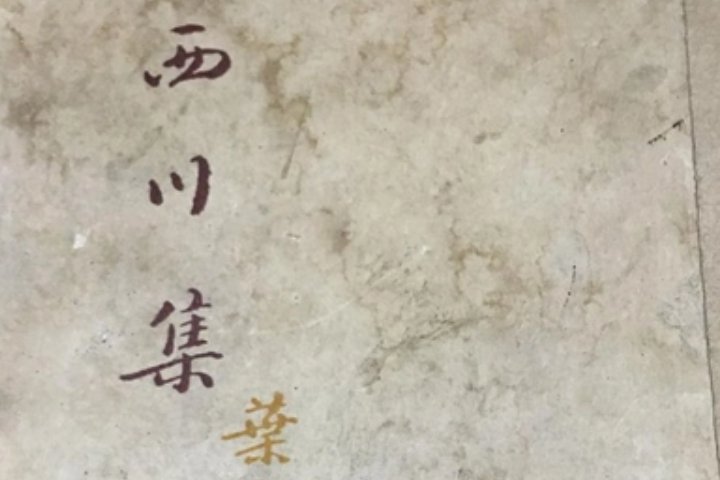 西川集
葉